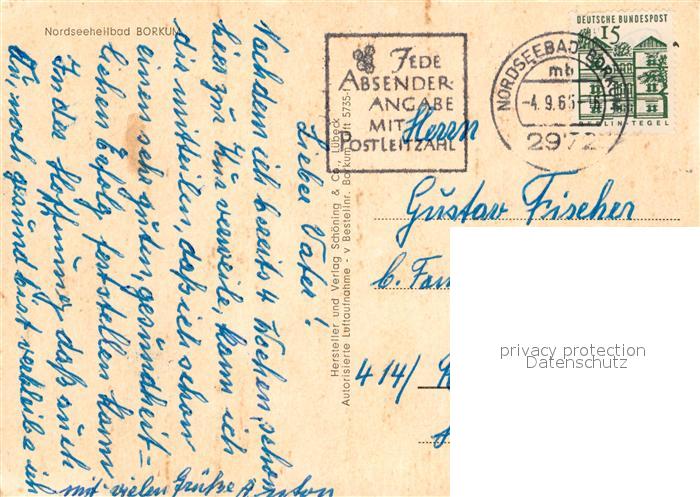 Nordseeheilbad BORKUM
Lieber Vater!
Nachdem ich bereits 4 Wochen schon
hier zur Kur verweile, kann ich
dir mitteilen, daß ich schon
einen sehr guten, gesundheit-
lichen Erfolg feststellen kann
In der Hoffnung, daß auch
Du noch gesund bist verbleibe ich
mit vielen Grüße Anton
Hersteller und Verlag Schöning & Co., Lübeck
Autorisierte Luftaufnahme - v Bestellnr. Borkum Luft 5735-1
JEDE
ABSENDER-
ANGABE
MIT
POSTLEITZAHL
NORDSEEBAD BORKUM
mb
-4.9.65
2972
DEUTSCHE BUNDESPOST
15
BERLIN-TEGEL
Herrn
Gustav Fischer
b. Fam
414/
privacy protection
Datenschutz